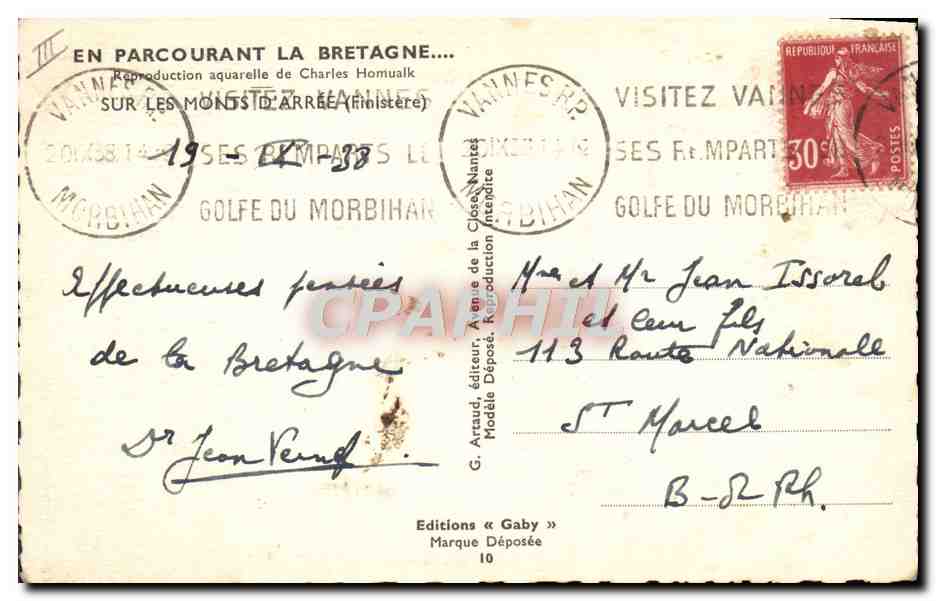 III
EN PARCOURANT LA BRETAGNE....
Reproduction aquarelle de Charles Homualk
SUR LES MONTS D'ARRÉE (Finistère)
19 - IX - 38
VANNES
MORBIHAN
VISITEZ VANNES
SES REMPARTS LE
GOLFE DU MORBIHAN
VANNES R.P.
MORBIHAN
VISITEZ VANN
SES REMPARTS
GOLFE DU MORBIHAN
REPUBLIQUE FRANÇAISE
30c
POSTES
Affectueuses pensées
de la Bretagne
Dr Jean
G. Artaud, éditeur, Avenue de la Close, Nantes
Modèle Déposé. Reproduction Interdite
CPAPHIL
Mme et Mr Jean Issorel
et leur fils
113 Route Nationale
St Marcel
B-d-Rh.
Editions « Gaby »
Marque Déposée
10